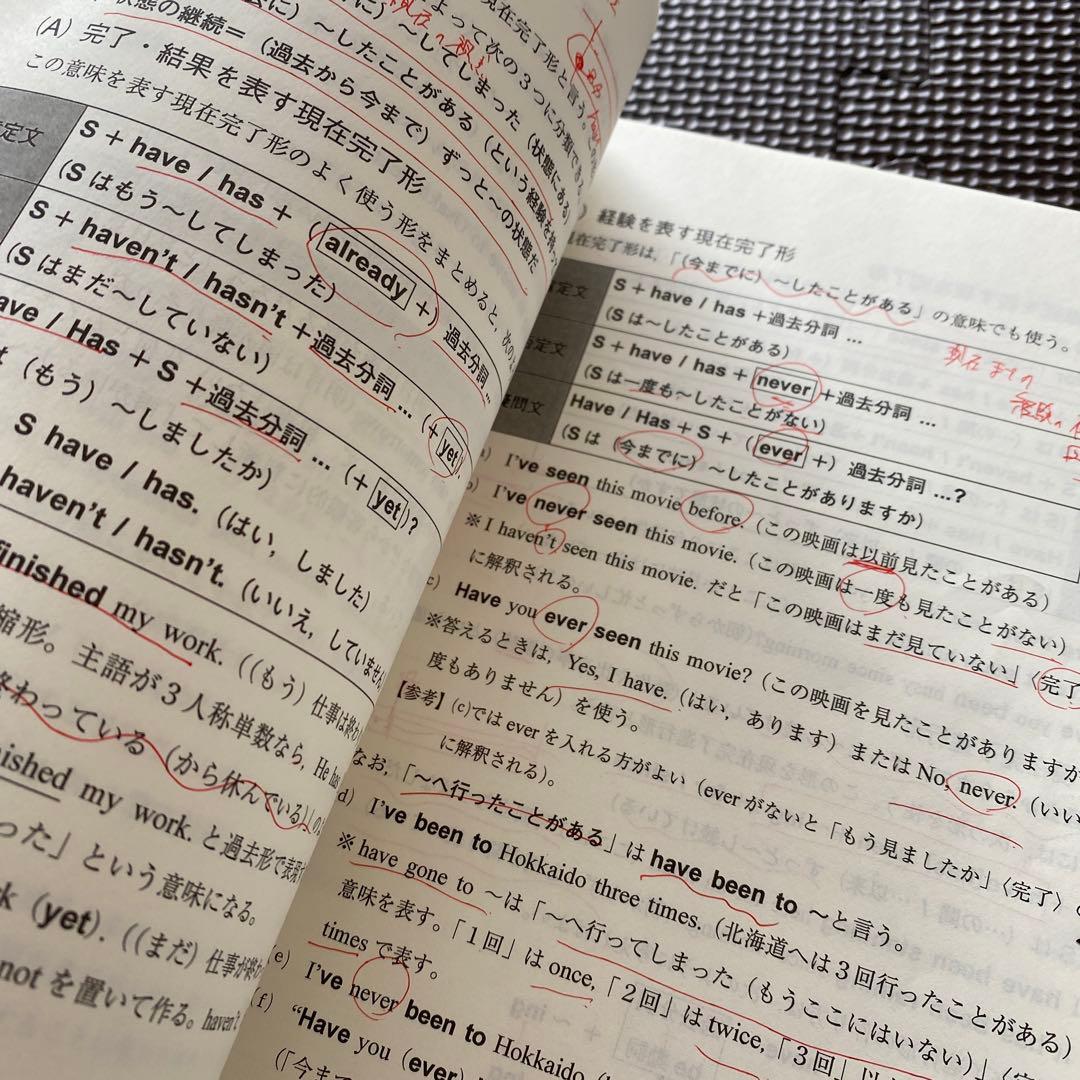 よって次の3つに分類できる。
現在完了形と言う。
～してしまった(状態にある)
～したことがある(という経験を持
状態の継続=(過去から今まで)ずっと～の状態だ
(A) 完了・結果を表す現在完了形
この意味を表す現在完了形のよく使う形をまとめると、次の
定文
S + have / has + (already +) 過去分詞 ...
(S はもう～してしまった)
S + haven't / hasn't +過去分詞 ... (+ yet)
(S はまだ～していない)
ave / Has + S +過去分詞 ... (+ yet)?
(もう)～しましたか)
S have / has. (はい, しました)
haven't / hasn't. (いいえ, していません
finished my work. ((もう) 仕事は終わ
縮形。主語が3人称単数なら, He has
終わっている(から休んでいる)」の
ished my work. と過去形で表現
った」という意味になる。
k (yet). ((まだ) 仕事が終わ
not を置いて作る。haven't
) 経験を表す現在完了形
現在完了形は,「(今までに) ～したことがある」の意味でも使う。
定文
S + have / has +過去分詞 ...
(S は～したことがある)
定文
S + have / has + never +過去分詞 ...
(S は一度も～したことがない)
疑問文
Have / Has + S + (ever +) 過去分詞 ...?
(S は (今までに) ～したことがありますか)
現在までの
) I've seen this movie before. (この映画は以前見たことがある)
) I've never seen this movie. (この映画は一度も見たことがない)
※I haven't seen this movie. だと「この映画はまだ見ていない」〈完了
に解釈される。
c) Have you ever seen this movie? (この映画を見たことがありますか
※答えるときは, Yes, I have. (はい, あります) または No, never. (いい
度もありません) を使う。
【参考】(c)では ever を入れる方がよい (ever がないと「もう見ましたか」〈完了〉
に解釈される)。
なお,「～へ行ったことがある」は have been to ～と言う。
d) I've been to Hokkaido three times. (北海道へは3回行ったことがある)
※have gone to ～は「～へ行ってしまった (もうここにはいない)」
意味を表す。「1回」は once, 「2回」は twice, 「3回」以
times で表す。
(e) I've never been to Hokkaido.
f) “Have you (ever)
(「今まで